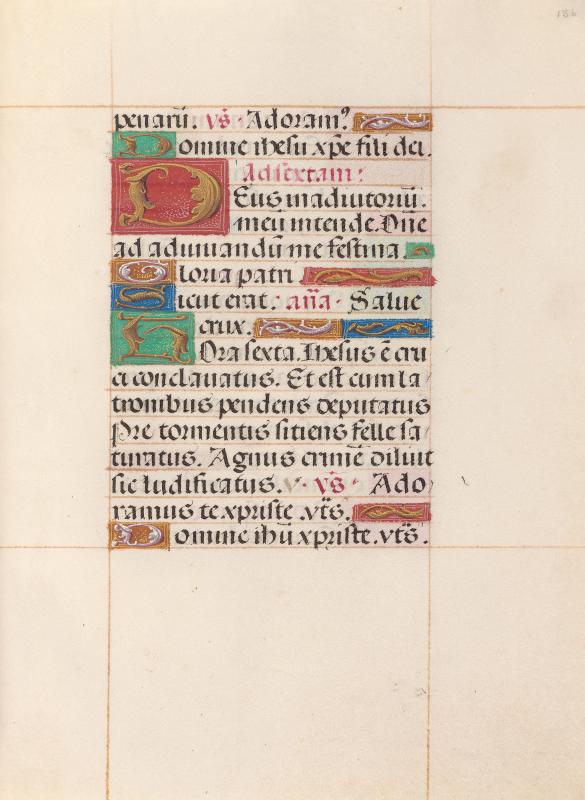 penarũ. vs̃. Adoram⁹
Domine ihesu xp̃e fili dei.
Ad sextam:
Deus in adiutoriũ.
meũ intende. Dñe
ad adiuuandũ me festina.
Gloria patri
Sicut erat. añã. Salue
crux.
Hora sexta. Ihesus ẽ cru
ci conclauatus. Et est cum la
tronibus pendens deputatus
Pre tormentis sitiens felle sa
turatus. Agnus crimẽ diluit
sic ludificatus. v. vs̃. Ado
ramus te xpriste .vts̃.
Domine ihũ xpriste .vts̃.